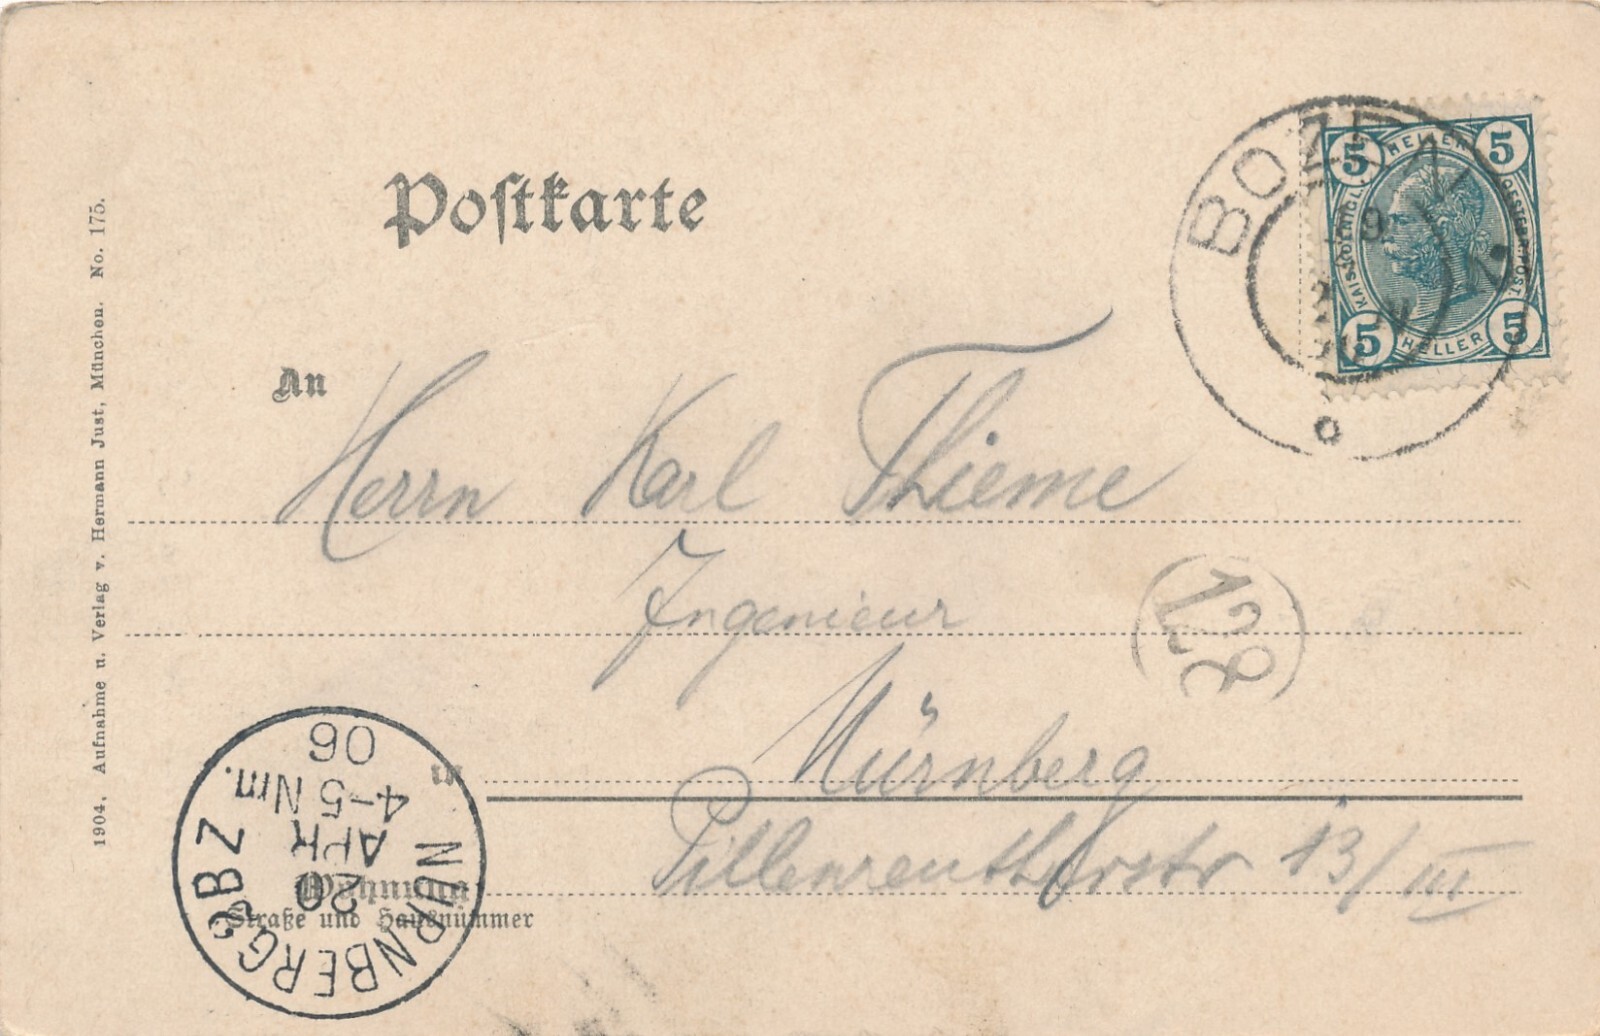 Postkarte
An
Herrn Karl Thieme
Ingenieur
in Nürnberg
Pillenreutherstr 13/III
Wohnung
Straße und Hausnummer
1904. Aufnahme u. Verlag v. Hermann Just, München. No. 175.
BOZEN
5 HELLER 5
KAIS. KOENIGL. OESTERR. POST.
5 HELLER 5
128
NÜRNBERG 3BZ
20
APR
4-5 Nm.
06